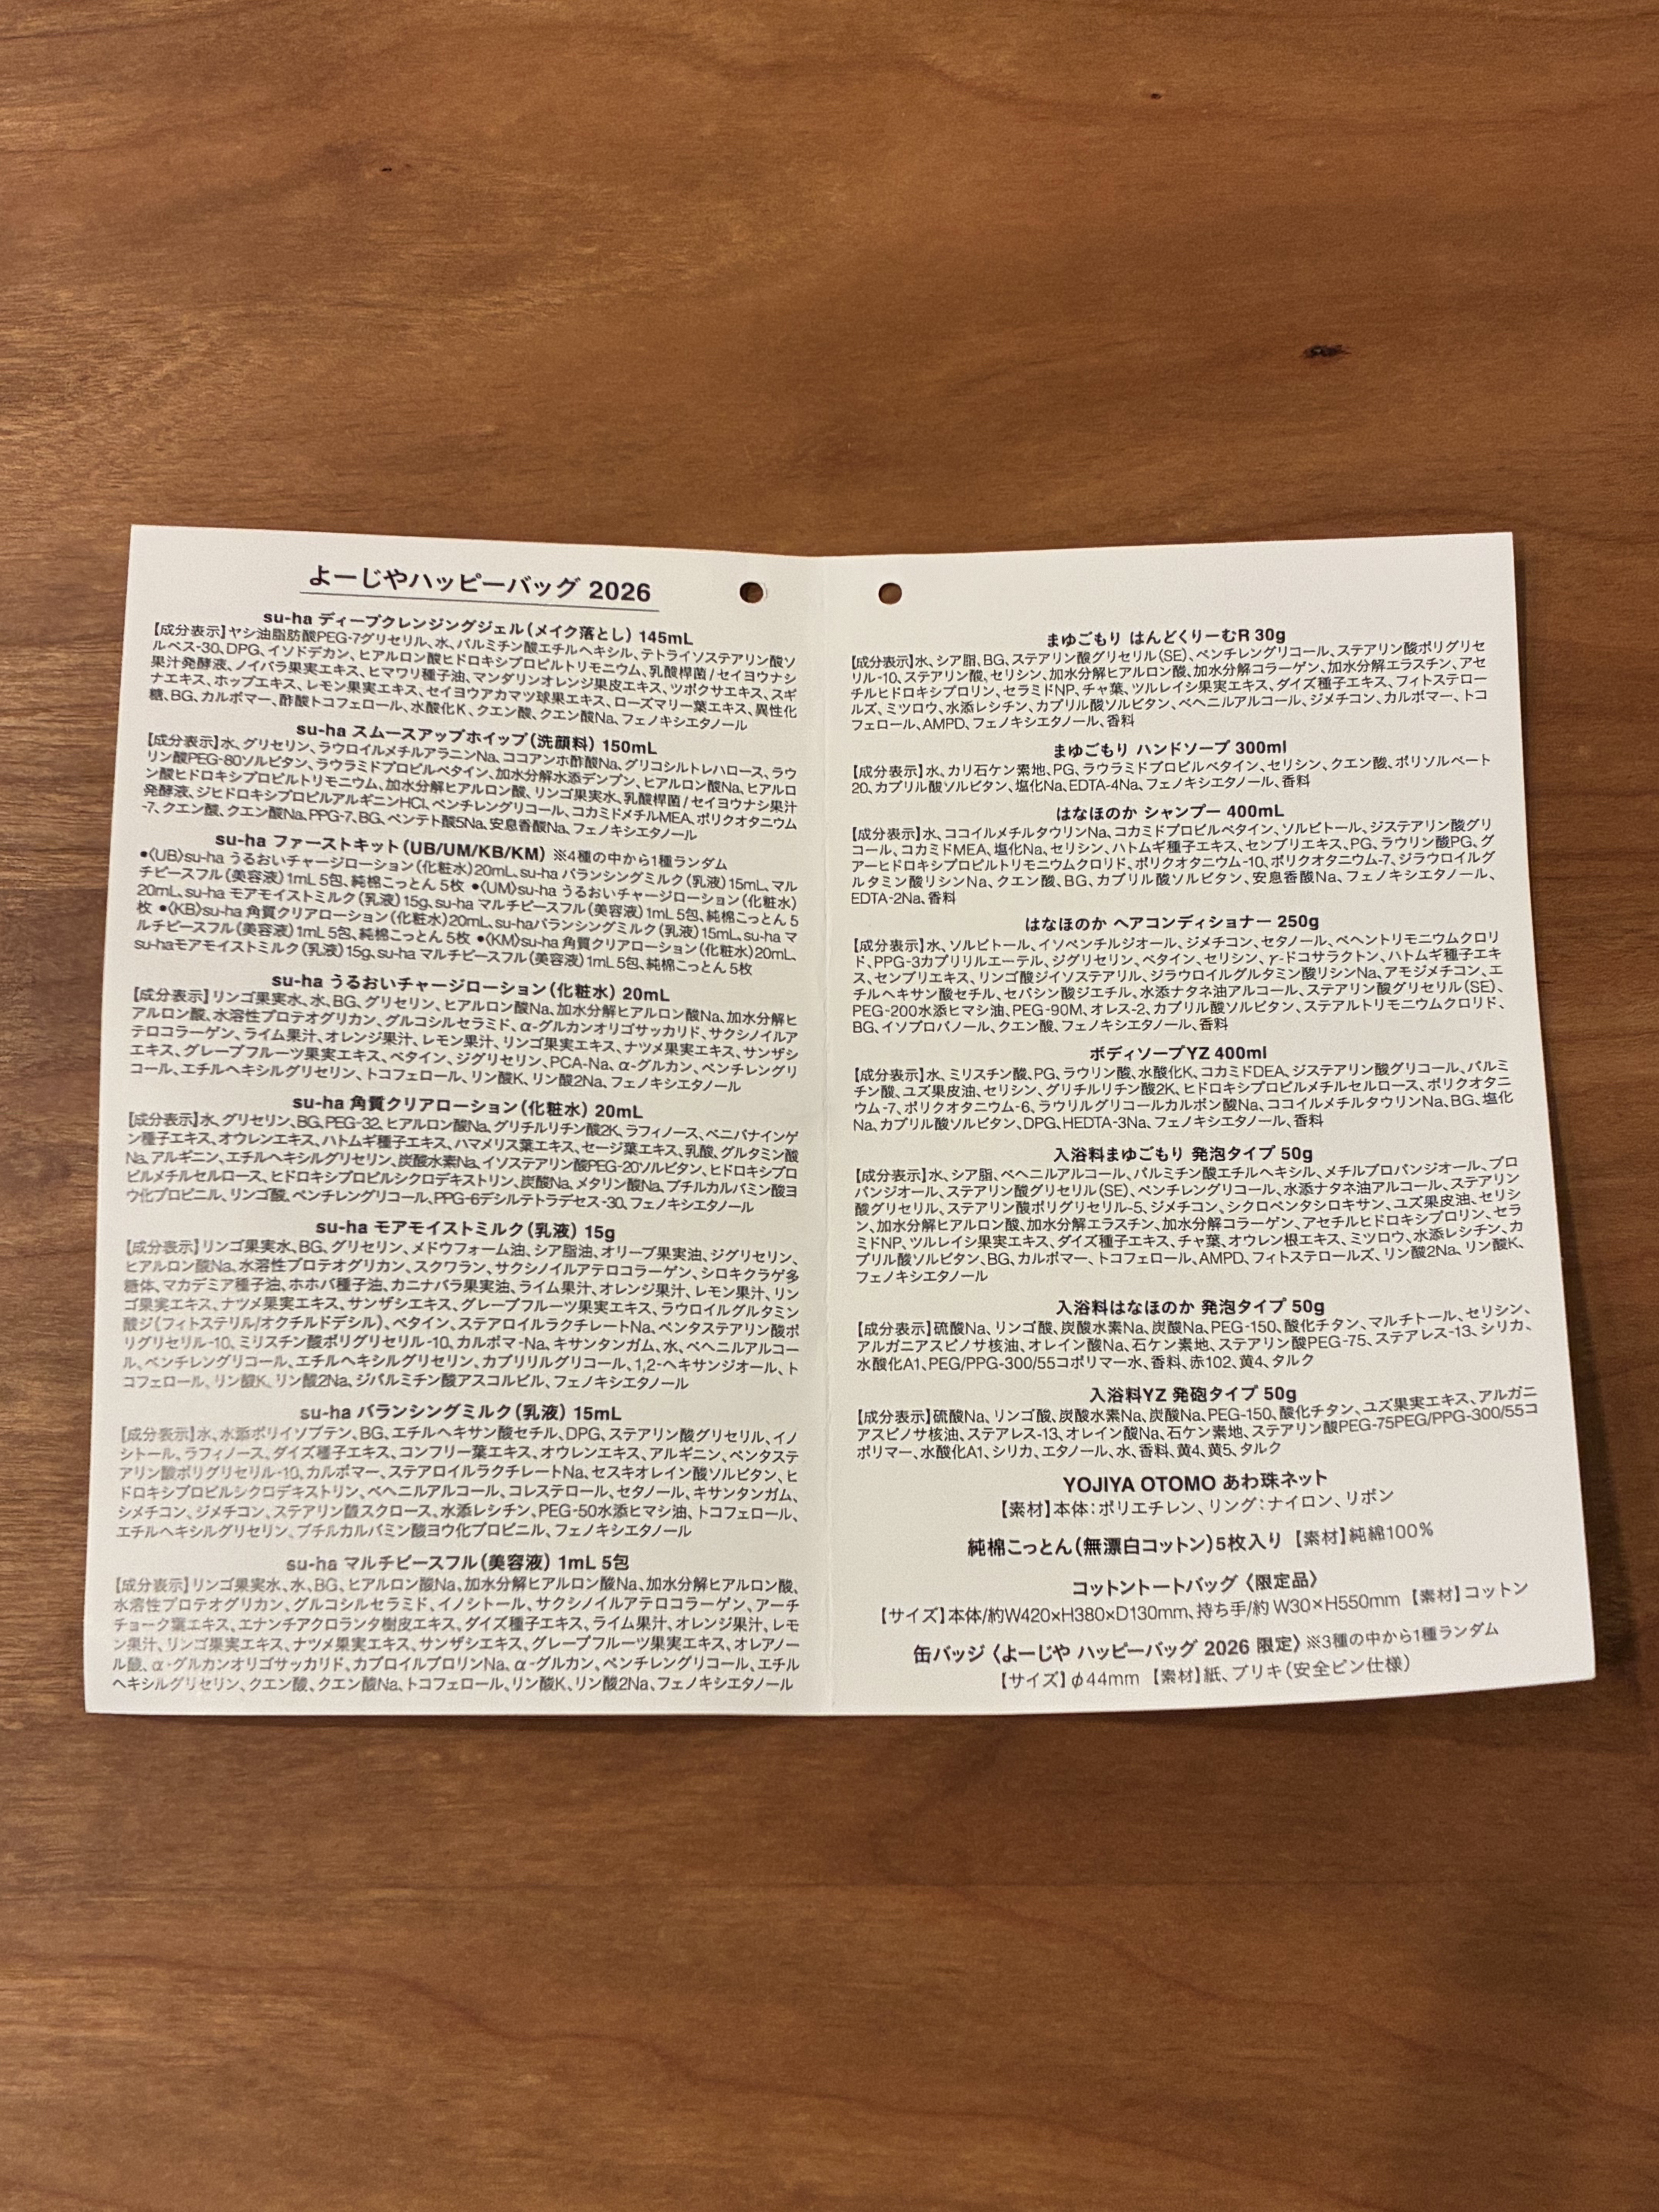 よーじやハッピーバッグ 2026
su-ha ディープクレンジングジェル（メイク落とし）145mL
【成分表示】ヤシ油脂肪酸PEG-7グリセリル、水、パルミチン酸エチルヘキシル、テトライソステアリン酸ソ
ルベス-30、DPG、イソドデカン、ヒアルロン酸ヒドロキシプロピルトリモニウム、乳酸桿菌/セイヨウナシ
果汁発酵液、ノイバラ果実エキス、ヒマワリ種子油、マンダリンオレンジ果皮エキス、ツボクサエキス、スギ
ナエキス、ホップエキス、レモン果実エキス、セイヨウアカマツ球果エキス、ローズマリー葉エキス、異性化
糖、BG、カルボマー、酢酸トコフェロール、水酸化K、クエン酸、クエン酸Na、フェノキシエタノール
su-ha スムースアップホイップ（洗顔料）150mL
【成分表示】水、グリセリン、ラウロイルメチルアラニンNa、ココアンホ酢酸Na、グリコシルトレハロース、ラウ
リン酸PEG-80ソルビタン、ラウラミドプロピルベタイン、加水分解水添デンプン、ヒアルロン酸Na、ヒアルロ
ン酸ヒドロキシプロピルトリモニウム、加水分解ヒアルロン酸、リンゴ果実水、乳酸桿菌/セイヨウナシ果汁
発酵液、ジヒドロキシプロピルアルギニンHCl、ペンチレングリコール、コカミドメチルMEA、ポリクオタニウム
-7、クエン酸、クエン酸Na、PPG-7、BG、ペンテト酸5Na、安息香酸Na、フェノキシエタノール
su-ha ファーストキット（UB/UM/KB/KM）※4種の中から1種ランダム
●〈UB〉su-ha うるおいチャージローション（化粧水）20mL、su-ha バランシングミルク（乳液）15mL、マル
チピースフル（美容液）1mL 5包、純棉こっとん 5枚 ●〈UM〉su-ha うるおいチャージローション（化粧水）
20mL、su-ha モアモイストミルク（乳液）15g、su-ha マルチピースフル（美容液）1mL 5包、純棉こっとん 5
枚 ●〈KB〉su-ha 角質クリアローション（化粧水）20mL、su-haバランシングミルク（乳液）15mL、su-ha マ
ルチピースフル（美容液）1mL 5包、純棉こっとん 5枚 ●〈KM〉su-ha 角質クリアローション（化粧水）20mL、
su-haモアモイストミルク（乳液）15g、su-ha マルチピースフル（美容液）1mL 5包、純棉こっとん 5枚
su-ha うるおいチャージローション（化粧水）20mL
【成分表示】リンゴ果実水、水、BG、グリセリン、ヒアルロン酸Na、加水分解ヒアルロン酸Na、加水分解ヒ
アルロン酸、水溶性プロテオグリカン、グルコシルセラミド、α-グルカンオリゴサッカリド、サクシノイルア
テロコラーゲン、ライム果汁、オレンジ果汁、レモン果汁、リンゴ果実エキス、ナツメ果実エキス、サンザシ
エキス、グレープフルーツ果実エキス、ベタイン、ジグリセリン、PCA-Na、α-グルカン、ペンチレングリ
コール、エチルヘキシルグリセリン、トコフェロール、リン酸K、リン酸2Na、フェノキシエタノール
su-ha 角質クリアローション（化粧水）20mL
【成分表示】水、グリセリン、BG、PEG-32、ヒアルロン酸Na、グリチルリチン酸2K、ラフィノース、ベニバナインゲ
ン種子エキス、オウレンエキス、ハトムギ種子エキス、ハマメリス葉エキス、セージ葉エキス、乳酸、グルタミン酸
Na、アルギニン、エチルヘキシルグリセリン、炭酸水素Na、イソステアリン酸PEG-20ソルビタン、ヒドロキシプロ
ピルメチルセルロース、ヒドロキシプロピルシクロデキストリン、炭酸Na、メタリン酸Na、ブチルカルバミン酸ヨ
ウ化プロピニル、リンゴ酸、ペンチレングリコール、PPG-6デシルテトラデセス-30、フェノキシエタノール
su-ha モアモイストミルク（乳液）15g
【成分表示】リンゴ果実水、BG、グリセリン、メドウフォーム油、シア脂油、オリーブ果実油、ジグリセリン、
ヒアルロン酸Na、水溶性プロテオグリカン、スクワラン、サクシノイルアテロコラーゲン、シロキクラゲ多
糖体、マカデミア種子油、ホホバ種子油、カニナバラ果実油、ライム果汁、オレンジ果汁、レモン果汁、リン
ゴ果実エキス、ナツメ果実エキス、サンザシエキス、グレープフルーツ果実エキス、ラウロイルグルタミン
酸ジ（フィトステリル/オクチルドデシル）、ベタイン、ステアロイルラクチレートNa、ペンタステアリン酸ポ
リグリセリル-10、ミリスチン酸ポリグリセリル-10、カルボマ-Na、キサンタンガム、水、ベヘニルアルコー
ル、ペンチレングリコール、エチルヘキシルグリセリン、カプリリルグリコール、1,2-ヘキサンジオール、ト
コフェロール、リン酸K、リン酸2Na、ジパルミチン酸アスコルビル、フェノキシエタノール
su-ha バランシングミルク（乳液）15mL
【成分表示】水、水添ポリイソブテン、BG、エチルヘキサン酸セチル、DPG、ステアリン酸グリセリル、イノ
シトール、ラフィノース、ダイズ種子エキス、コンフリー葉エキス、オウレンエキス、アルギニン、ペンタステ
アリン酸ポリグリセリル-10、カルボマー、ステアロイルラクチレートNa、セスキオレイン酸ソルビタン、ヒ
ドロキシプロピルシクロデキストリン、ベヘニルアルコール、コレステロール、セタノール、キサンタンガム、
シメチコン、ジメチコン、ステアリン酸スクロース、水添レシチン、PEG-50水添ヒマシ油、トコフェロール、
エチルヘキシルグリセリン、ブチルカルバミン酸ヨウ化プロピニル、フェノキシエタノール
su-ha マルチピースフル（美容液）1mL 5包
【成分表示】リンゴ果実水、水、BG、ヒアルロン酸Na、加水分解ヒアルロン酸Na、加水分解ヒアルロン酸、
水溶性プロテオグリカン、グルコシルセラミド、イノシトール、サクシノイルアテロコラーゲン、アーチ
チョーク葉エキス、エナンチアクロランタ樹皮エキス、ダイズ種子エキス、ライム果汁、オレンジ果汁、レモ
ン果汁、リンゴ果実エキス、ナツメ果実エキス、サンザシエキス、グレープフルーツ果実エキス、オレアノー
ル酸、α-グルカンオリゴサッカリド、カプロイルプロリンNa、α-グルカン、ペンチレングリコール、エチル
ヘキシルグリセリン、クエン酸、クエン酸Na、トコフェロール、リン酸K、リン酸2Na、フェノキシエタノール
まゆごもり はんどくりーむR 30g
【成分表示】水、シア脂、BG、ステアリン酸グリセリル（SE）、ペンチレングリコール、ステアリン酸ポリグリセ
リル-10、ステアリン酸、セリシン、加水分解ヒアルロン酸、加水分解コラーゲン、加水分解エラスチン、アセ
チルヒドロキシプロリン、セラミドNP、チャ葉、ツルレイシ果実エキス、ダイズ種子エキス、フィトステロー
ルズ、ミツロウ、水添レシチン、カプリル酸ソルビタン、ベヘニルアルコール、ジメチコン、カルボマー、トコ
フェロール、AMPD、フェノキシエタノール、香料
まゆごもり ハンドソープ 300ml
【成分表示】水、カリ石ケン素地、PG、ラウラミドプロピルベタイン、セリシン、クエン酸、ポリソルベート
20、カプリル酸ソルビタン、塩化Na、EDTA-4Na、フェノキシエタノール、香料
はなほのか シャンプー 400mL
【成分表示】水、ココイルメチルタウリンNa、コカミドプロピルベタイン、ソルビトール、ジステアリン酸グリ
コール、コカミドMEA、塩化Na、セリシン、ハトムギ種子エキス、センブリエキス、PG、ラウリン酸PG、グ
アーヒドロキシプロピルトリモニウムクロリド、ポリクオタニウム-10、ポリクオタニウム-7、ジラウロイルグ
ルタミン酸リシンNa、クエン酸、BG、カプリル酸ソルビタン、安息香酸Na、フェノキシエタノール、
EDTA-2Na、香料
はなほのか ヘアコンディショナー 250g
【成分表示】水、ソルビトール、イソペンチルジオール、ジメチコン、セタノール、ベヘントリモニウムクロリ
ド、PPG-3カプリリルエーテル、ジグリセリン、ベタイン、セリシン、γ-ドコサラクトン、ハトムギ種子エキ
ス、センブリエキス、リンゴ酸ジイソステアリル、ジラウロイルグルタミン酸リシンNa、アモジメチコン、エ
チルヘキサン酸セチル、セバシン酸ジエチル、水添ナタネ油アルコール、ステアリン酸グリセリル（SE）、
PEG-200水添ヒマシ油、PEG-90M、オレス-2、カプリル酸ソルビタン、ステアルトリモニウムクロリド、
BG、イソプロパノール、クエン酸、フェノキシエタノール、香料
ボディソープYZ 400ml
【成分表示】水、ミリスチン酸、PG、ラウリン酸、水酸化K、コカミドDEA、ジステアリン酸グリコール、パルミ
チン酸、ユズ果皮油、セリシン、グリチルリチン酸2K、ヒドロキシプロピルメチルセルロース、ポリクオタニ
ウム-7、ポリクオタニウム-6、ラウリルグリコールカルボン酸Na、ココイルメチルタウリンNa、BG、塩化
Na、カプリル酸ソルビタン、DPG、HEDTA-3Na、フェノキシエタノール、香料
入浴料まゆごもり 発泡タイプ 50g
【成分表示】水、シア脂、ベヘニルアルコール、パルミチン酸エチルヘキシル、メチルプロパンジオール、プロ
パンジオール、ステアリン酸グリセリル（SE）、ペンチレングリコール、水添ナタネ油アルコール、ステアリン
酸グリセリル、ステアリン酸ポリグリセリル-5、ジメチコン、シクロペンタシロキサン、ユズ果皮油、セリシ
ン、加水分解ヒアルロン酸、加水分解エラスチン、加水分解コラーゲン、アセチルヒドロキシプロリン、セラ
ミドNP、ツルレイシ果実エキス、ダイズ種子エキス、チャ葉、オウレン根エキス、ミツロウ、水添レシチン、カ
プリル酸ソルビタン、BG、カルボマー、トコフェロール、AMPD、フィトステロールズ、リン酸2Na、リン酸K、
フェノキシエタノール
入浴料はなほのか 発泡タイプ 50g
【成分表示】硫酸Na、リンゴ酸、炭酸水素Na、炭酸Na、PEG-150、酸化チタン、マルチトール、セリシン、
アルガニアスピノサ核油、オレイン酸Na、石ケン素地、ステアリン酸PEG-75、ステアレス-13、シリカ、
水酸化A1、PEG/PPG-300/55コポリマー水、香料、赤102、黄4、タルク
入浴料YZ 発砲タイプ 50g
【成分表示】硫酸Na、リンゴ酸、炭酸水素Na、炭酸Na、PEG-150、酸化チタン、ユズ果実エキス、アルガニ
アスピノサ核油、ステアレス-13、オレイン酸Na、石ケン素地、ステアリン酸PEG-75PEG/PPG-300/55コ
ポリマー、水酸化A1、シリカ、エタノール、水、香料、黄4、黄5、タルク
YOJIYA OTOMO あわ珠ネット
【素材】本体：ポリエチレン、リング：ナイロン、リボン
純棉こっとん（無漂白コットン）5枚入り 【素材】純綿100％
コットントートバッグ〈限定品〉
【サイズ】本体/約W420×H380×D130mm、持ち手/約 W30×H550mm 【素材】コットン
缶バッジ〈よーじや ハッピーバッグ 2026 限定〉※3種の中から1種ランダム
【サイズ】φ44mm 【素材】紙、ブリキ（安全ピン仕様）